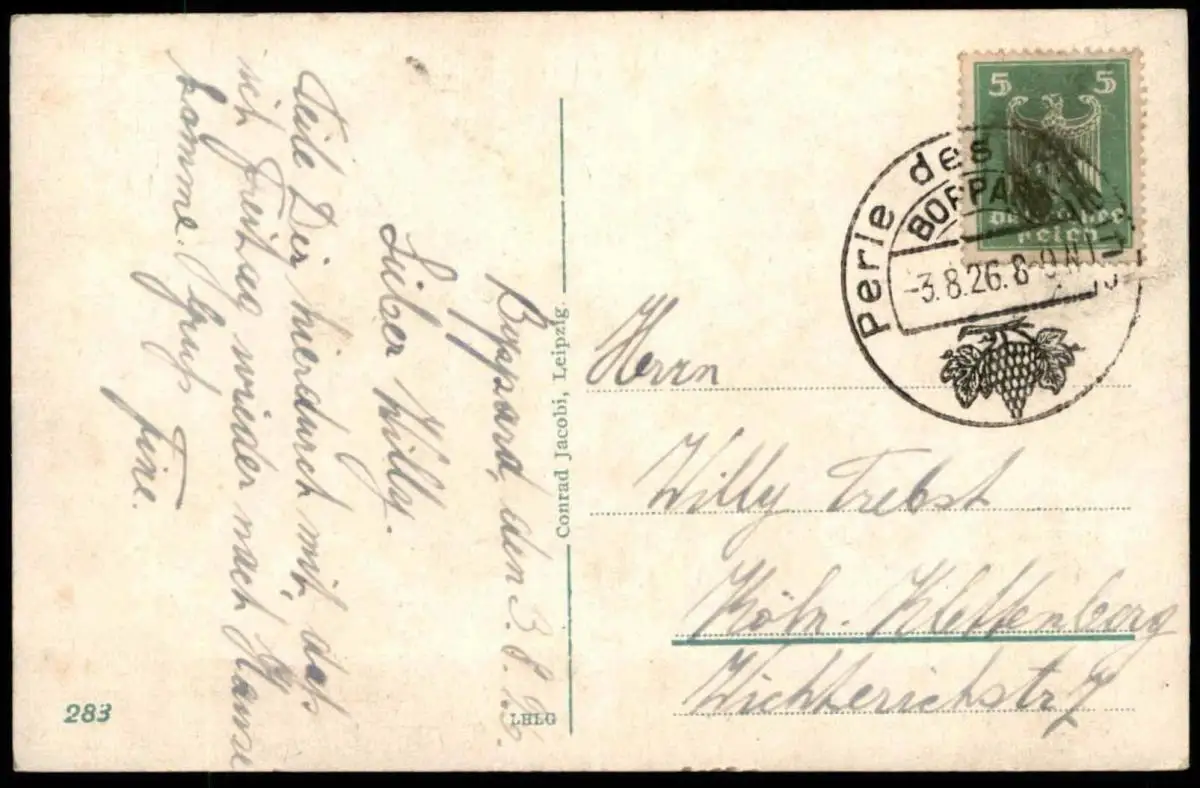 Boppard, den 3.8.26.
Lieber Willy.
Teile Dir hierdurch mit, daß
ich Freitag wieder nach Hause
komme. Gruß
Fine.
283
Conrad Jacobi, Leipzig.
LHLG
5 5
Deutsches
Reich
Perle des
BOPPARD
-3.8.26.8-9
Herrn
Willy Trebst
Köln-Klettenberg
Wichterichstr 7